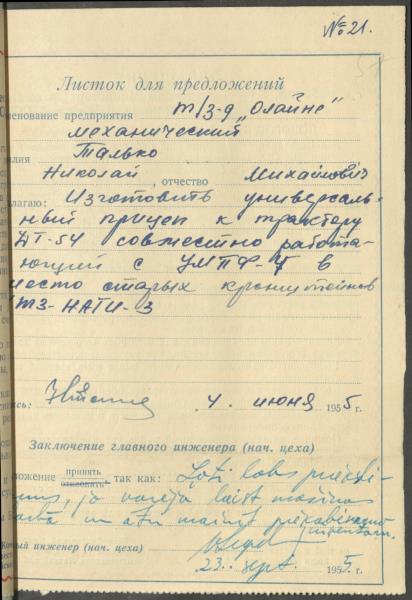 № 21.
Листок для предложений
менование предприятия т/з-д „Олайне"
механический
милия Талько
Николай , отчество Михайлович
лагаю: Изготовить универсаль-
ный прицеп к трактору
ДТ-54 совместно работа-
ющий с УМПФ-4 в
место старых кронштейнов
СТЗ-НАТИ-3
пись: 4. июня 1955 г.
Заключение главного инженера (нач. цеха)
ложение принять отклонить так как: Ļoti labs priekšli-
kums, jo varēja laist mašīnas
darbā un ātri mainīt
инженер (нач. цеха)
23. sept. 1955 г.